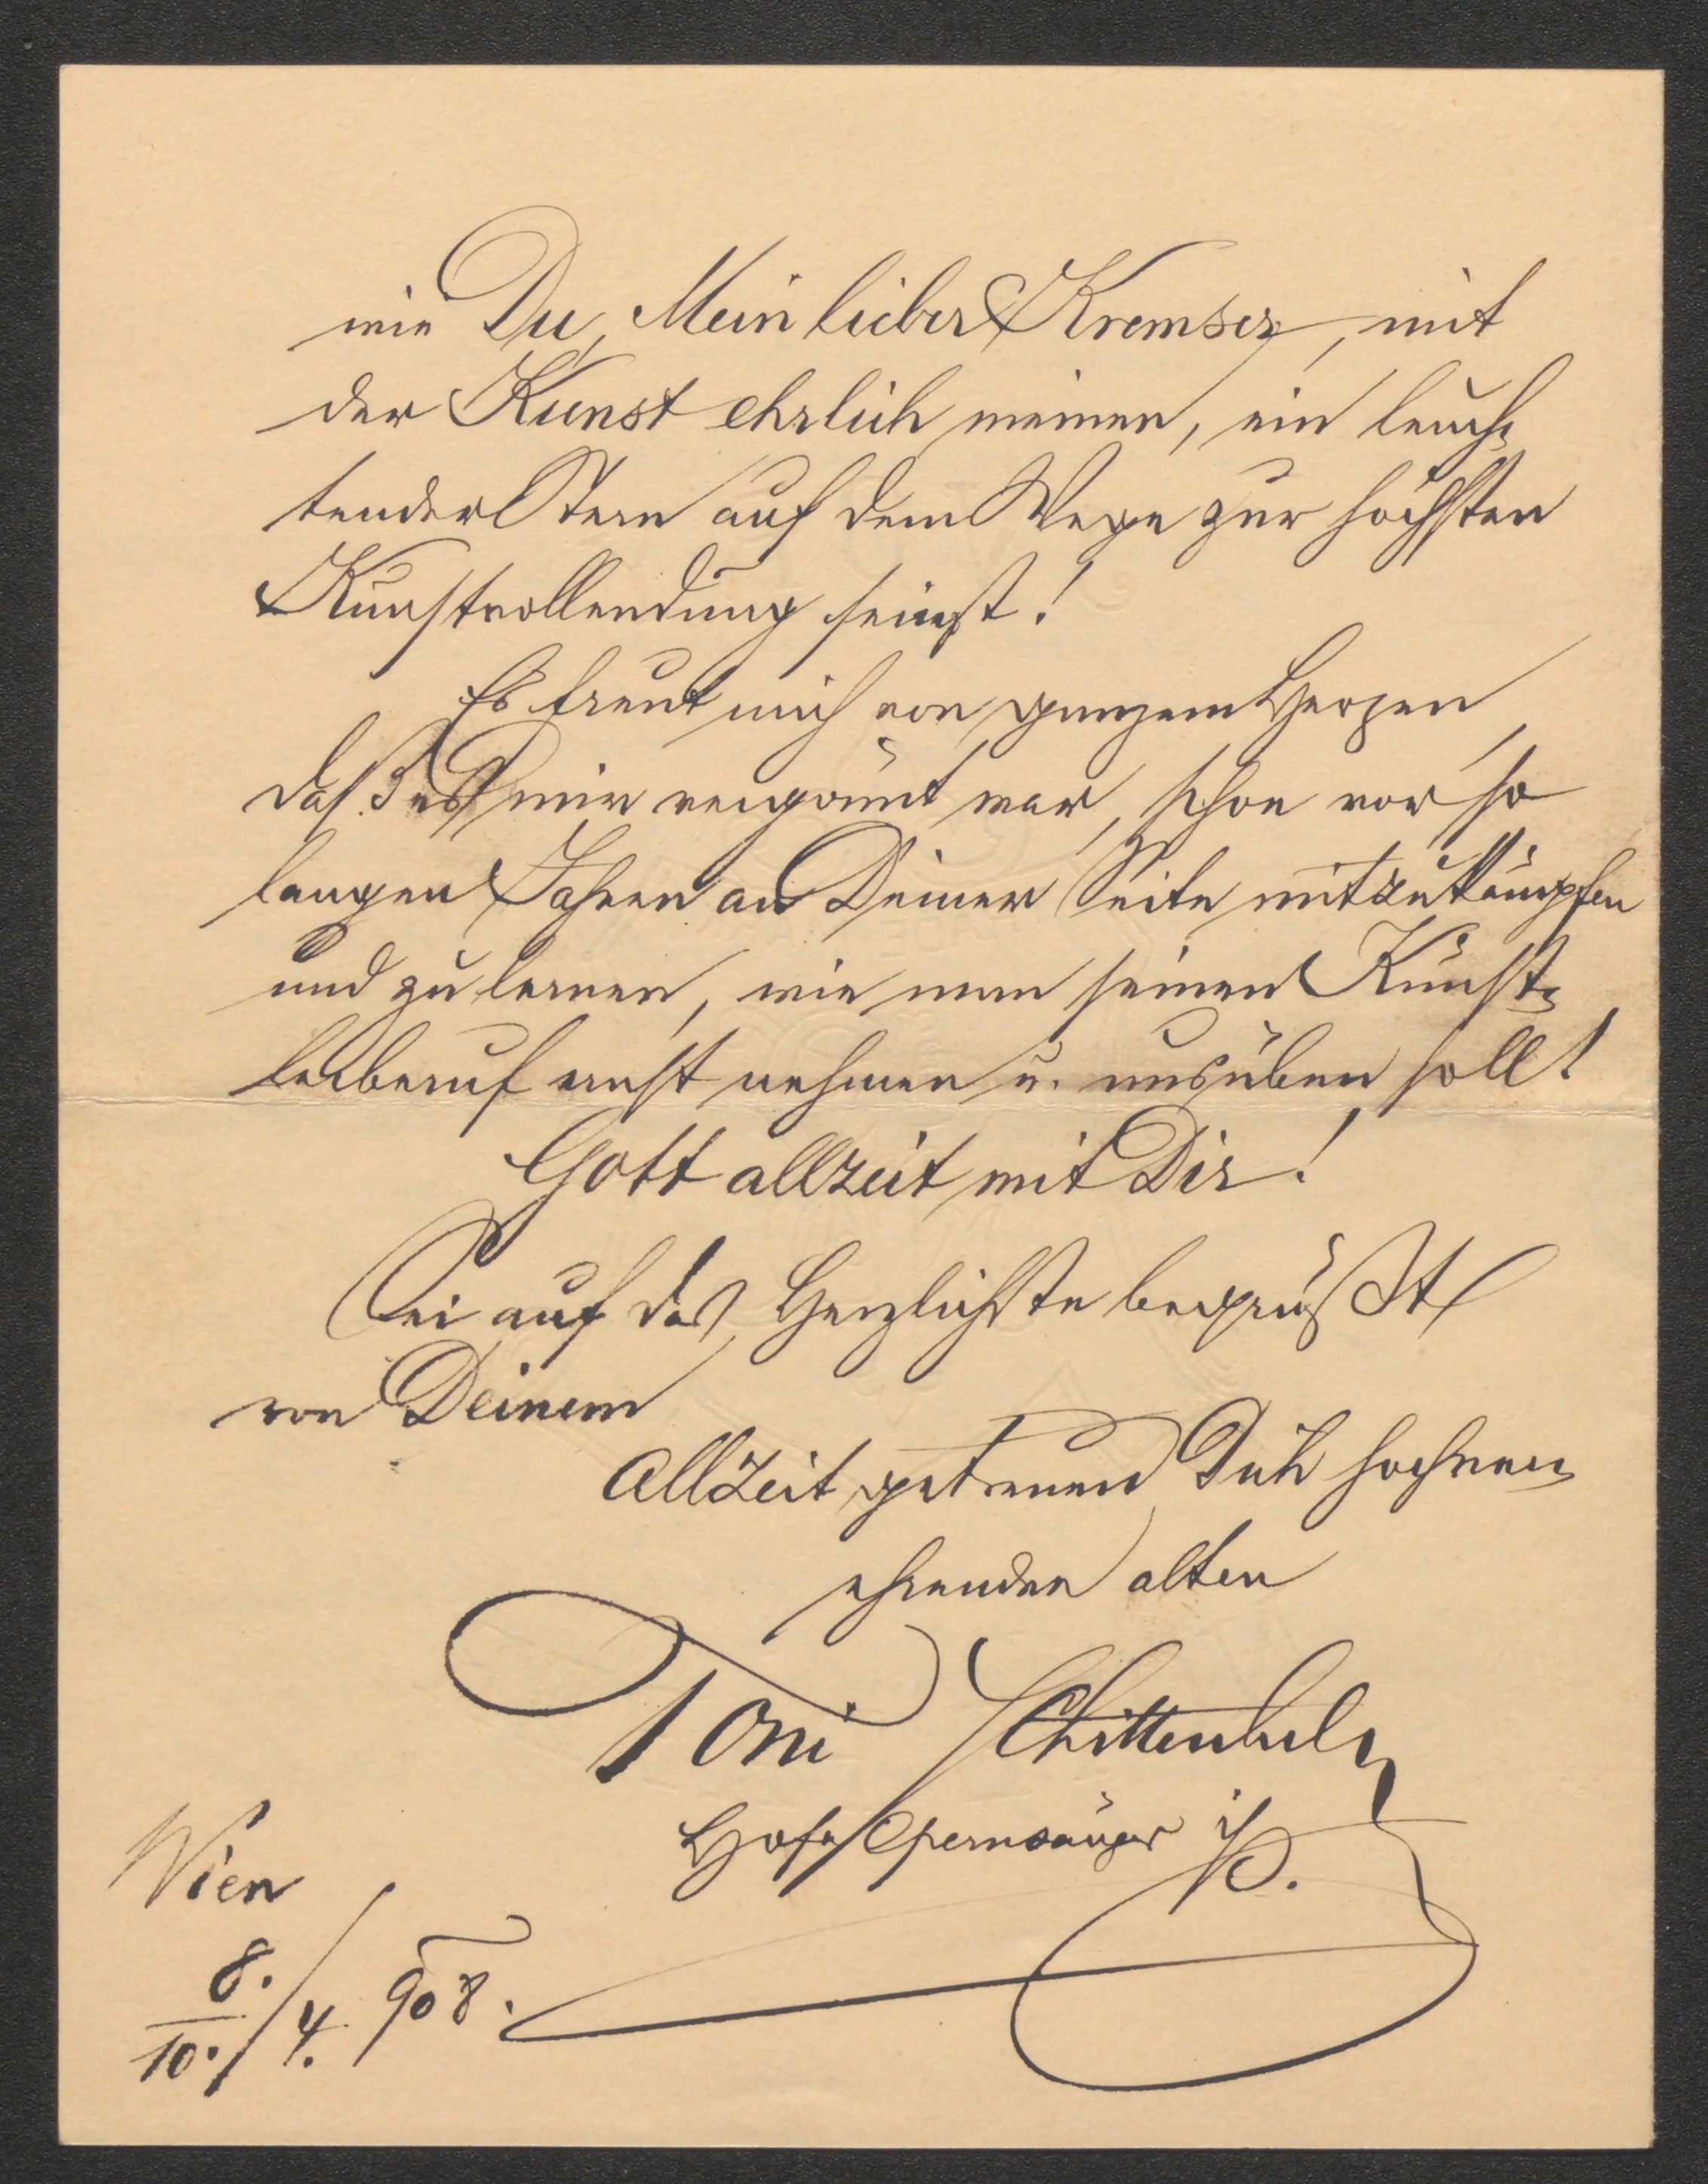 wie Du, Mein lieber Kremser, mit
der Kunst ehrlich meinen, ein leuch-
tender Stern auf dem Wege zur höchsten
Kunstvollendung seiest!
Es freut mich von ganzem Herzen
daß es mir vergönnt war, schon vor so
langen Jahren an Deiner Seite mitzukämpfen
und zu lernen, wie man seinen Künst-
lerberuf ernst nehmen u. ausüben soll!
Gott allzeit mit Dir!
Sei auf das Herzlichste begrüßt
von Deinem
allzeit getreuen Dich hochver-
ehrenden alten
Toni Schittenhelm
Hof-Opernsänger i/P.
Wien
8./10./4. 908.